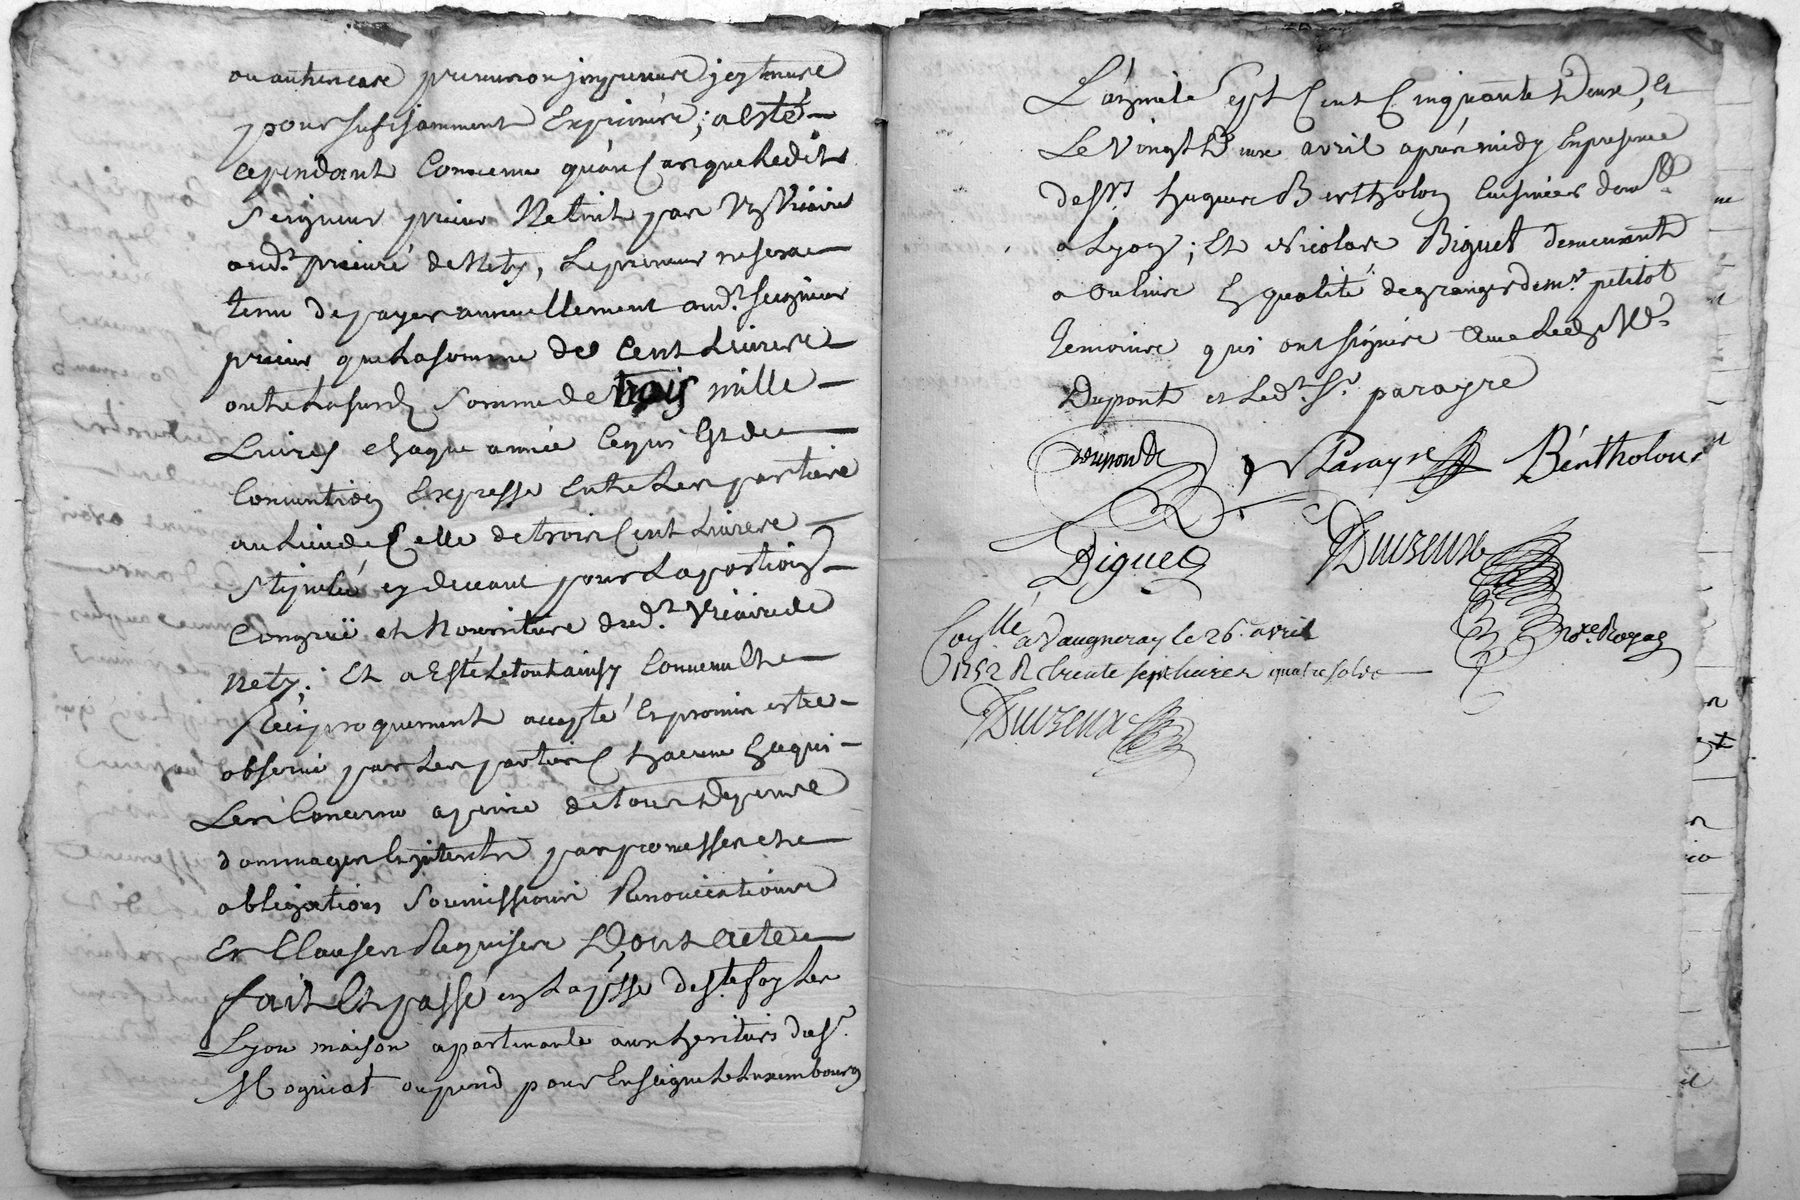 ou autre cas
pour sufisamment Exprimés; a esté
cependant Convenu qu'au Cas que ledit
Seigneur prieur Retint par Vicaire
aud.t prieuré de Nety, Le preneur ne sera
tenu de payer annuellement aud.t Seigneur
prieur que la somme de Cent Livres
outre la susd. somme de trois mille
Livres chaque année Ce qui Est de
Convention Expresse Entre Les parties
au Lieu de Celle de trois Cent Livres
Stipulée cy devant pour La portion
Congruë et Nouriture dud.t Vicaire de
Nety; Et a Esté Le tout ainsy Convenu
Réciproquement accepté Et promis estre
observé par Les parties Chacune En ce qui
Les Concerne a peine de tous Depens
dommages Et interests par promesses
obligations Soumissions Renonciations
Et Clauses Requises Dont acte
fait Et passé en La p.sse de S.te foy Les
Lyon maison apartenante aux heritiers du S.r
Mogniat ou pend pour Enseigne Le Luxembourg
L'an mil Sept Cent Cinquante Deux, et
Le Vingt Deux avril après midy En presence
de S.rs hugues Bertholon Cuisinier dem.t
a Lyon; Et Nicolas Biguet demeurant
a Oulins En qualité de granger de m.r petitot
temoins qui ont signés avec
Dupont et Led.t S.r parayre
Dupont Parayre Bértholon
Biguet Duizeux
n.re Royal
Con.llé a Vaugneray le 26. avril
1752 R. trente sept livres quatre sols
Duizeux